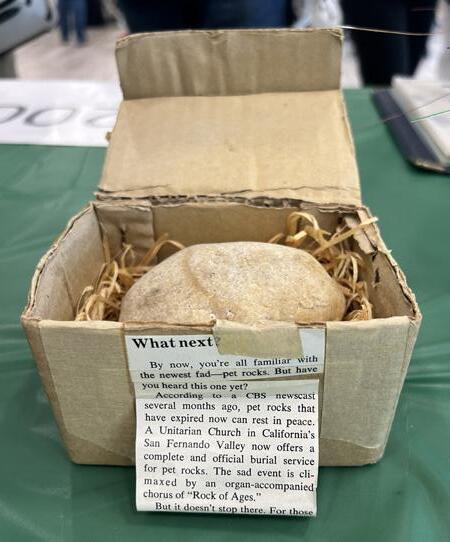 What next?
By now, you're all familiar with
the newest fad—pet rocks. But have
you heard this one yet?
According to a CBS newscast
several months ago, pet rocks that
have expired now can rest in peace.
A Unitarian Church in California's
San Fernando Valley now offers a
complete and official burial service
for pet rocks. The sad event is cli-
maxed by an organ-accompanied
chorus of "Rock of Ages."
But it doesn't stop there. For those